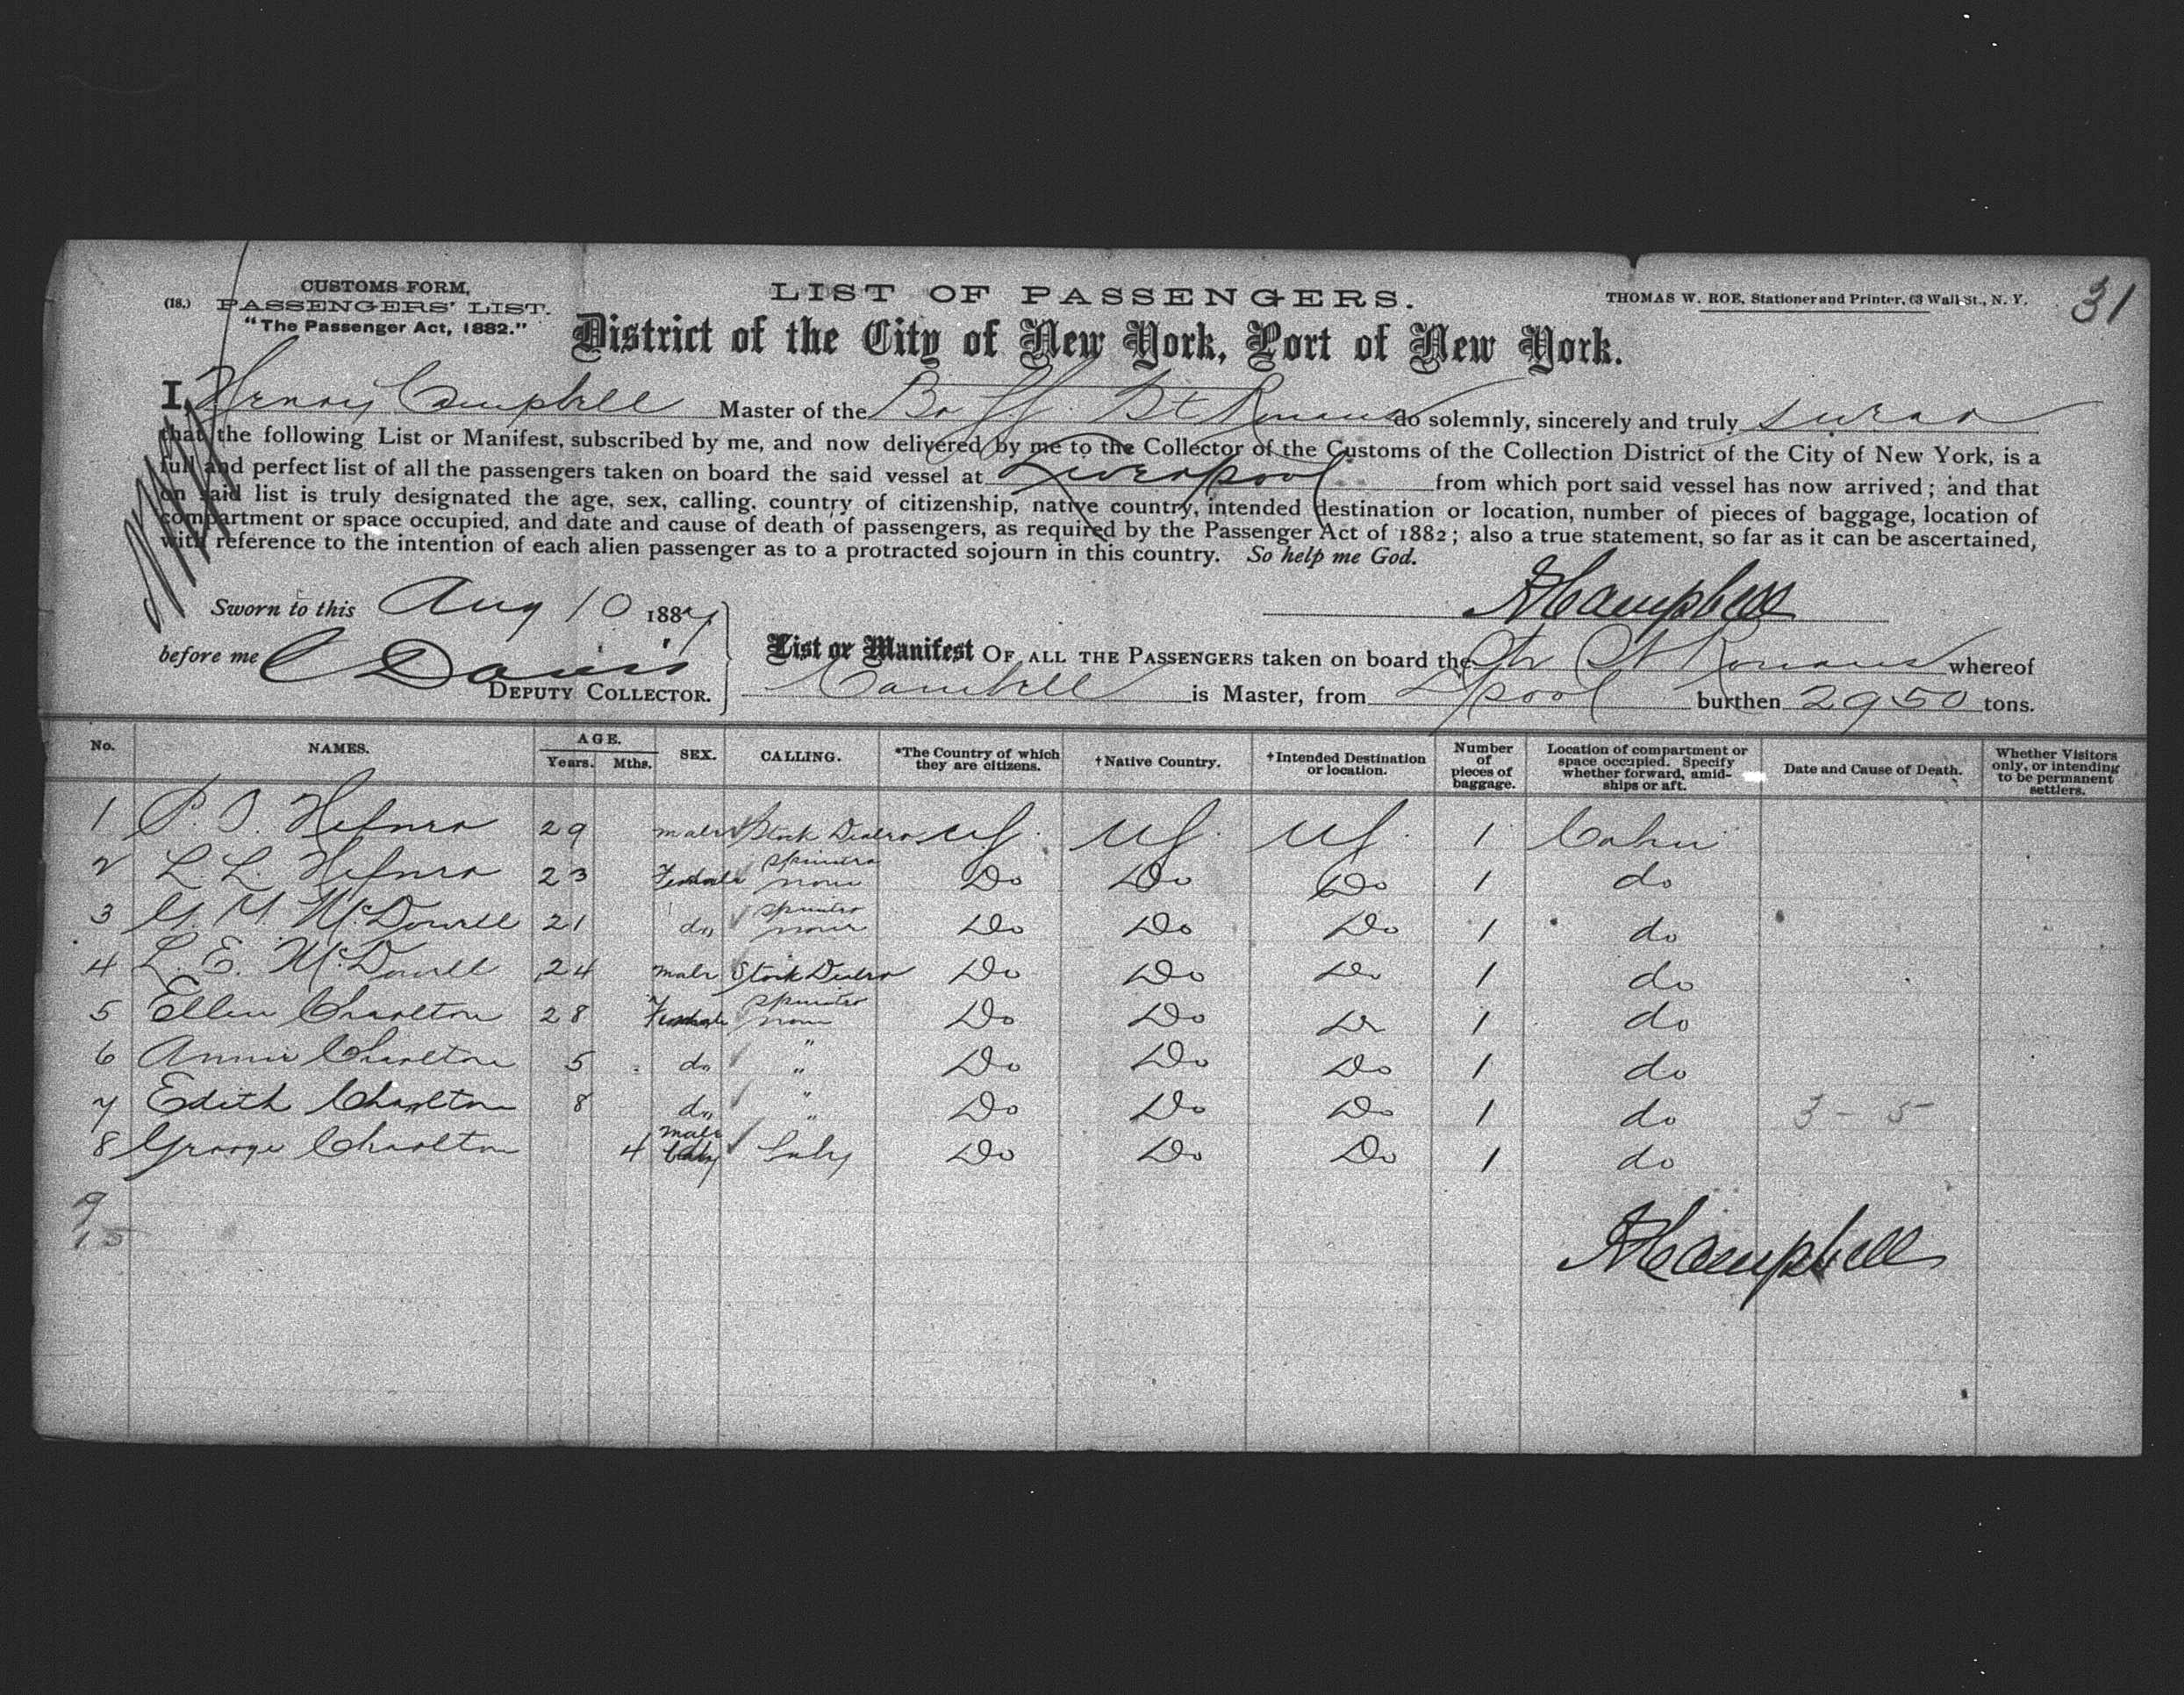 CUSTOMS FORM,
(18.) PASSENGERS' LIST.
"The Passenger Act, 1882."
LIST OF PASSENGERS.
THOMAS W. ROE, Stationer and Printer, 63 Wall St., N. Y.
31
District of the City of New York, Port of New York.
I, Henry Campbell Master of the St Ronans do solemnly, sincerely and truly swear
that the following List or Manifest, subscribed by me, and now delivered by me to the Collector of the Customs of the Collection District of the City of New York, is a
full and perfect list of all the passengers taken on board the said vessel at Liverpool from which port said vessel has now arrived; and that
on said list is truly designated the age, sex, calling, country of citizenship, native country, intended destination or location, number of pieces of baggage, location of
compartment or space occupied, and date and cause of death of passengers, as required by the Passenger Act of 1882; also a true statement, so far as it can be ascertained,
with reference to the intention of each alien passenger as to a protracted sojourn in this country. So help me God.
HCampbell
Sworn to this Aug 10 1887
before me C Davis
DEPUTY COLLECTOR.
List or Manifest OF ALL THE PASSENGERS taken on board the Str St Ronans whereof
Campbell is Master, from Lpool burthen 2950 tons.
No. NAMES. AGE. Years. Mths. SEX. CALLING. *The Country of which they are citizens. †Native Country. †Intended Destination or location. Number of pieces of baggage. Location of compartment or space occupied. Specify whether forward, amidships or aft. Date and Cause of Death. Whether Visitors only, or intending to be permanent settlers.
1 P. Hefner 29 male Stock Dealer US. US. US. 1 Cabin
2 L. L. Hefner 23 Female spinster none Do Do Do 1 do
3 McDowell 21 do spinster none Do Do Do 1 do
4 L. E. McDowell 24 male Stock Dealer Do Do Do 1 do
5 Ellen Charlton 28 Female spinster none Do Do Do 1 do
6 Annie Charlton 5 do " " Do Do Do 1 do
7 Edith Charlton 8 do " " Do Do Do 1 do 3 - 5
8 George Charlton 4 male baby baby Do Do Do 1 do
9
15
HCampbell